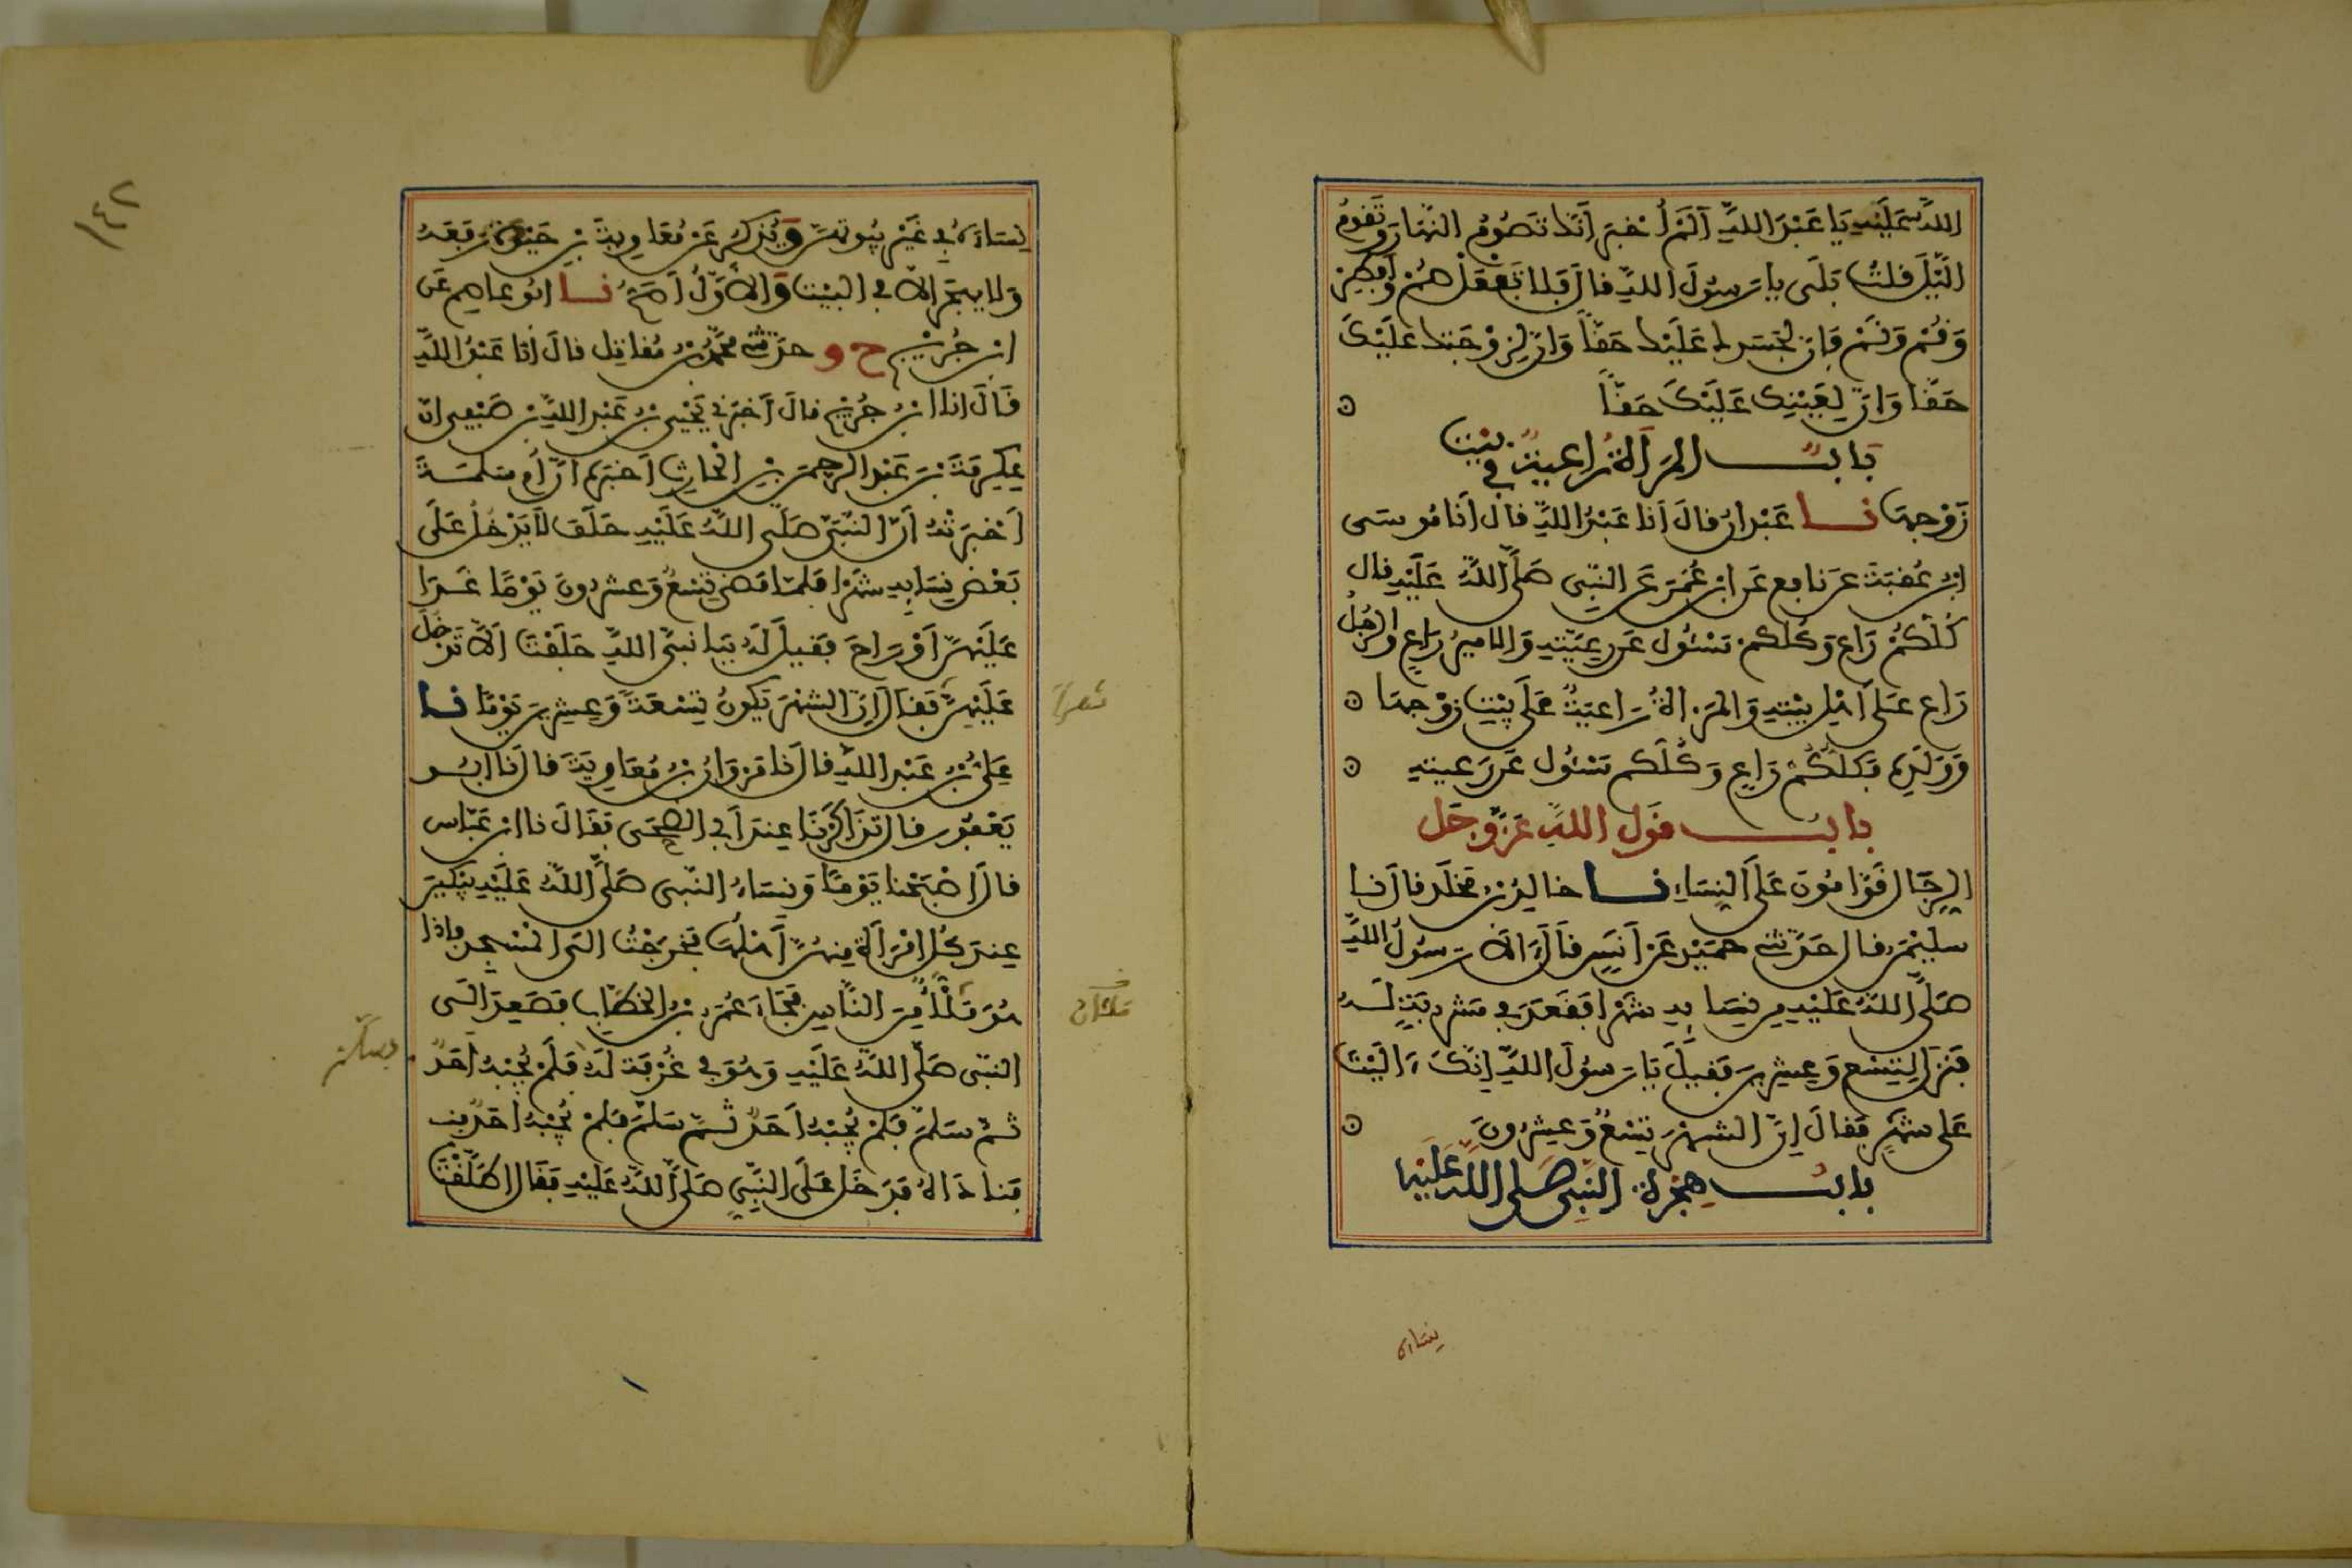 اللّٰه عَلَيْهِ يَا عَبْدَ اللَّهِ أَلَمْ أُخْبَرْ أَنَّكَ تَصُومُ النَّهَارَ وَتَقُومُ
اللَّيْلَ قلتُ بَلَى يا رَسُولَ اللَّهِ قالَ فَلا تَفْعَلْ صُمْ وَأَفْطِرْ
وَقُمْ وَنَمْ فَإِنَّ لِجَسَدِكَ عَلَيْكَ حَقّاً وَإِنَّ لِزَوْجِكَ عَلَيْكَ
حَقّا وَإِنَّ لِعَيْنِكَ عَلَيْكَ حَقّاً
بَابُ المَرْأَةُ رَاعِيَةٌ فِي بَيْتِ
زَوْجِهَا نَا عَبْدَانُ قالَ أَنَا عَبْدُ اللَّهِ قالَ أَنَا مُوسَى
ابْنُ عُقْبَةَ عَن نافِع عَنِ ابْنِ عُمَرَ عَنِ النَّبِي صَلَّى اللَّهُ عَلَيْهِ قال
كُلُّكُمْ رَاعٍ وَكُلُّكُمْ مَسْئُول عَن رَعِيَّتِهِ وَالاميرُ رَاعٍ وَالرَّجُلُ
رَاعٍ عَلَى أَهْلِ بَيْتِهِ وَالمَرْأَةُ رَاعِيَةٌ عَلَى بَيْتِ زَوْجِهَا
وَوَلَدِهِ فَكُلُّكُمْ رَاعٍ وَكُلُّكُم مَسْئُول عَن رَعِيتِهِ
بابُ قَوْلِ اللَّهِ عَزَّ وَجَل
الرِّجَالُ قَوَّامُونَ عَلَى النِّسَاءِ نَا خالِدُ بْنُ مَخْلَد قالَ نَا
سليْمَنُ قالَ حَدَّثَنِي حُمَيْد عَنْ أَنَسٍ قَالَ آلَى رَسُولُ اللَّهِ
صَلَّى اللَّهُ عَلَيْهِ مِن نِسَايِهِ شَهْرا فَقَعَدَ فِي مَشْرُبَةٍ لَهُ
فَنَزَلَ لِتِسْعٍ وَعِشْرِينَ فَقِيلَ يَا رَسُولَ اللَّهِ إِنَّكَ ءَالَيْتَ
عَلى شَهْرٍ فَقالَ إِنَّ الشَّهْرَ تِسْعٌ وَعِشْرُونَ
بابُ هِجْرَةِ النَّبِيِّ صَلى اللَّهُ عَلَيْهِ
نِسَاءَهُ
١٤٢
نِسَاءَهُ فِي غَيْرِ بُيُوتِهِنَّ وَيُذْكَرُ عَنْ مُعَاوِيَةَ بْنِ حَيْدَةَ رَفَعَهُ
وَلا يهجَرَ إِلَّا فِي البَيْتِ وَالأَوَّلُ أَصَحُّ نَا ابُو عاصِم عَنِ
ابْنِ جُرَيْجٍ ح و حدَّثَنِي مُحَمَّدُ بْنُ مُقاتِل قالَ أَنا عَبْدُ اللَّهِ
قَالَ انا ابْنُ جُرَيْجٍ قالَ أَخْبَرَنِي يَحْيَى بْنُ عَبْدِ اللَّهِ بْنِ صَيْفِي انّ
عِكْرِمَةَ بْنَ عَبْدِ الرَّحْمَنِ بْنِ الْحَارِثِ أَخْبَرَهُ أَنَّ أُم سَلَمَةَ
أَخْبَرَتْهُ أَنّ النَّبِيَّ صَلَّى اللَّهُ عَلَيْهِ حَلَفَ لَا يَدْخُلُ عَلَى
بَعْضِ نِسَايِهِ شَهْرا فَلَمَّا مَضَى تِسْعٌ وَعِشْرُونَ يَوْمًا غَدَا
عَلَيْهِنَّ أَوْ رَاحَ فَقِيلَ لَهُ يَا نَبِيَّ اللَّهِ حَلَفْتَ أَلَّا تَدْخُلَ
عَلَيْهِنَّ فَقَالَ إِنَّ الشَّهْرَ يَكُونُ تِسْعَةً وَعِشْرِينَ يَوْمًا نَا
شهراً
عَلِيُّ بْنُ عَبْدِ اللَّهِ قالَ نَا مَرْوَانُ بْنُ مُعَاوِيَةَ قالَ نَا ابُو
يَعْفُورٍ قالَ تَذَاكَرْنَا عِنْدَ أَبِي الضُّحَى فَقَالَ نا ابْنُ عَبَّاس
قالَ أَصْبَحْنا يَوْمًا وَنِسَاءُ النَّبِي صَلَّى اللَّهُ عَلَيْهِ يَبْكِينَ
عِنْدَ كُلِّ امْرَأَةٍ مِنْهُنَّ أَهْلُهَا فَخَرَجْتُ إلَى المَسْجِدِ فإذا
هُوَ مَلْأٌ مِنَ النَّاسِ فَجَاءَ عُمَرُ بْنُ الخَطَّابِ فَصَعِدَ إلَى
ملآن
النَّبِي صَلَّى اللَّهُ عَلَيْهِ وَهُوَ فِي غُرْفَة لَهُ فَلَمْ يُجِبْهُ أَحَدٌ
فسلّم
ثُمَّ سَلَّمَ فَلَمْ يُجِبْهُ أَحَدٌ ثُمَّ سَلَّمَ فَلَمْ يُجِبْهُ أَحَدٌ
فَنادَاهُ فَدَخَلَ عَلَى النَّبِيِّ صَلَّى اللَّهُ عَلَيْهِ فَقَالَ أَطَلَّقْتَ